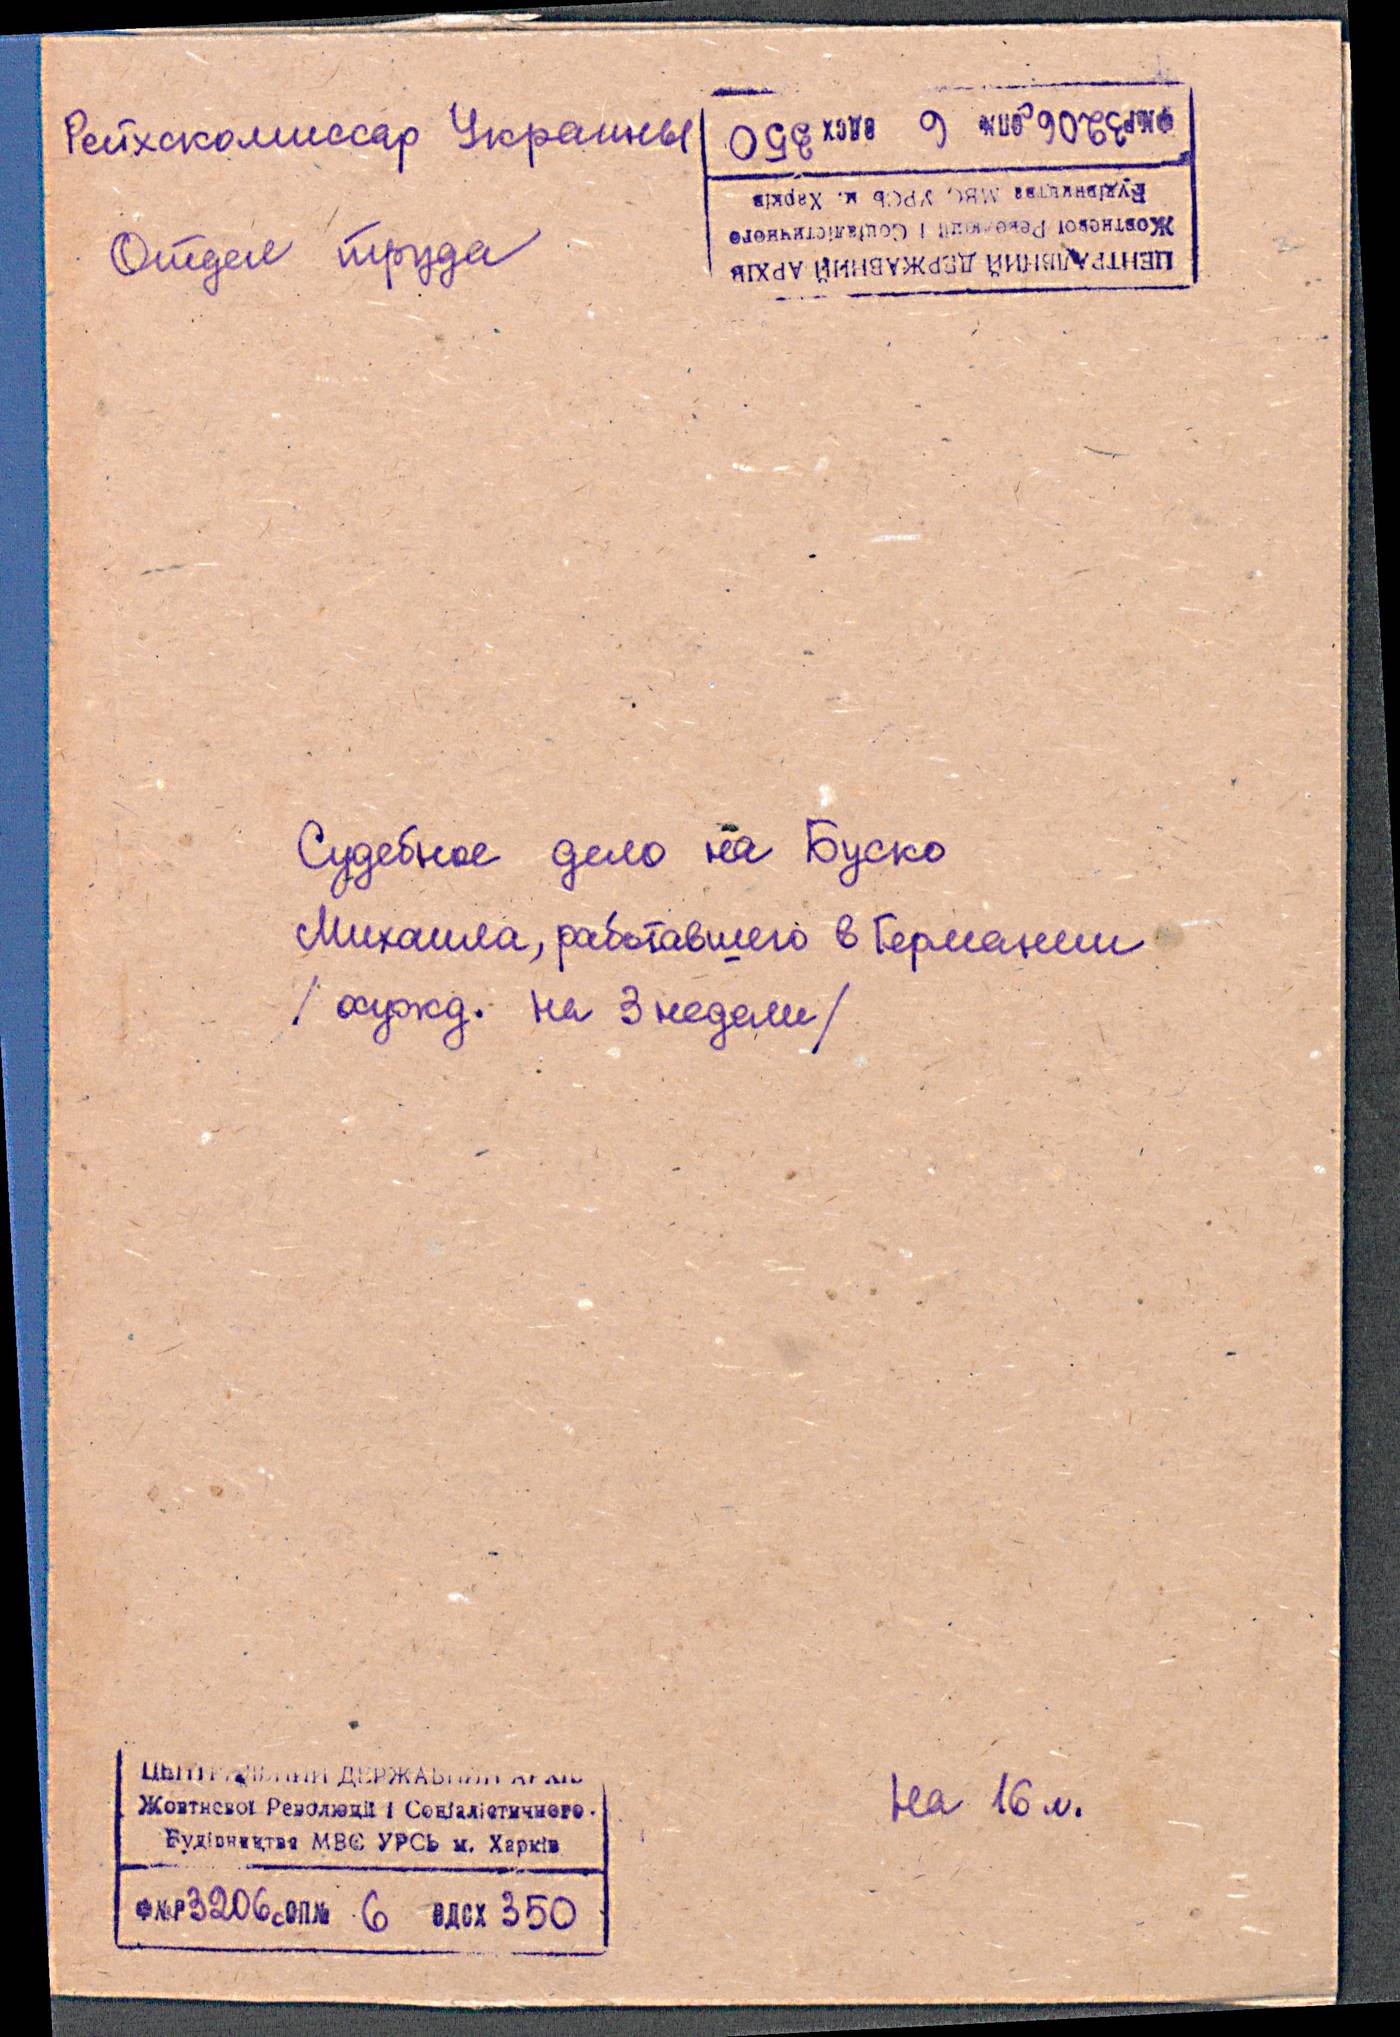 Рейхскомиссар Украины
Отдел труда
ЦЕНТРАЛЬНИЙ ДЕРЖАВНИЙ АРХІВ
Жовтневої Революції і Соціалістичного
Будівництва МВС УРСЬ м. Харків
Ф№Р3206с ОП№ 6 ОДСХ 350
Судебное дело на Буско
Михаила, работавшего в Германии
/осужд. на 3 недели/
ЦЕНТРАЛЬНИЙ ДЕРЖАВНИЙ АРХІВ
Жовтневої Революції і Соціалістичного
Будівництва МВС УРСЬ м. Харків
Ф№Р3206с ОП№ 6 ОДСХ 350
На 16 л.